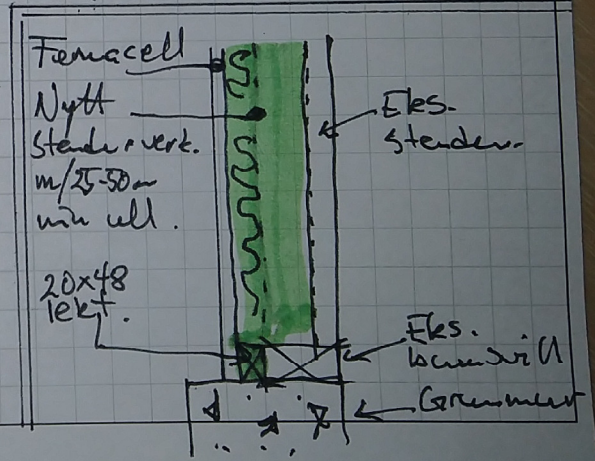 Fermacell
Nytt
Stenderverk.
m/25-50m
min ull.
20x48
lekt.
Eks.
stender.
Eks.
bunnsvill
Grunnmur